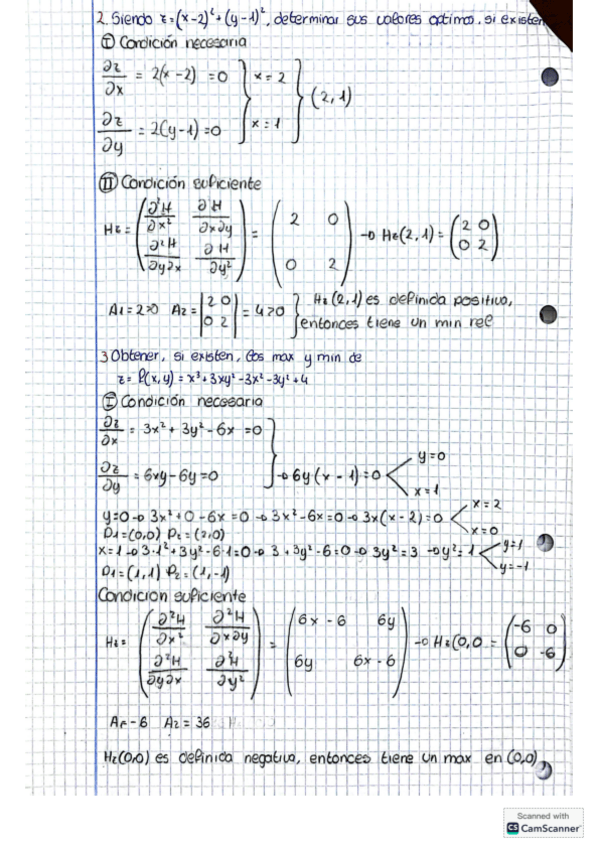 2. Siendo z=(x-2)²+(y-1)², determinar sus valores optimos, si existen
Ⓘ Condición necesaria
∂z/∂x = 2(x-2) =0 } x=2 } (2,1)
∂z/∂y = 2(y-1)=0 } x=1
Ⓘⓘ Condición suficiente
Hz = (∂²H/∂x² ∂H/∂x∂y ; ∂²H/∂y∂x ∂H/∂y²) = (2 0 ; 0 2) → Hz(2,1) = (2 0 ; 0 2)
A1=2>0 A2= |2 0 ; 0 2| = 4>0 } Hz(2,1) es definida positiva,
entonces tiene un min rel
3 Obtener, si existen, los max y min de
z = f(x,y) = x³+3xy²-3x²-3y²+4
Ⓘ Condición necesaria
∂z/∂x = 3x²+3y²-6x =0
∂z/∂y = 6xy-6y=0 } → 6y(x-1)=0 < y=0 ; x=1
y=0 → 3x²+0-6x=0 → 3x²-6x=0 → 3x(x-2)=0 < x=2 ; x=0
P1=(0,0) P2=(2,0)
x=1 → 3·1²+3y²-6·1=0 → 3+3y²-6=0 → 3y²=3 → y²=1 < y=1 ; y=-1
P1=(1,1) P2=(1,-1)
Condicion suficiente
Hz = (∂²H/∂x² ∂²H/∂x∂y ; ∂²H/∂y∂x ∂²H/∂y²) = (6x-6 6y ; 6y 6x-6) → Hz(0,0 = (-6 0 ; 0 -6)
A1=-6 A2=36
Hz(0,0) es definida negativa, entonces tiene un max en (0,0)
Scanned with
CS CamScanner